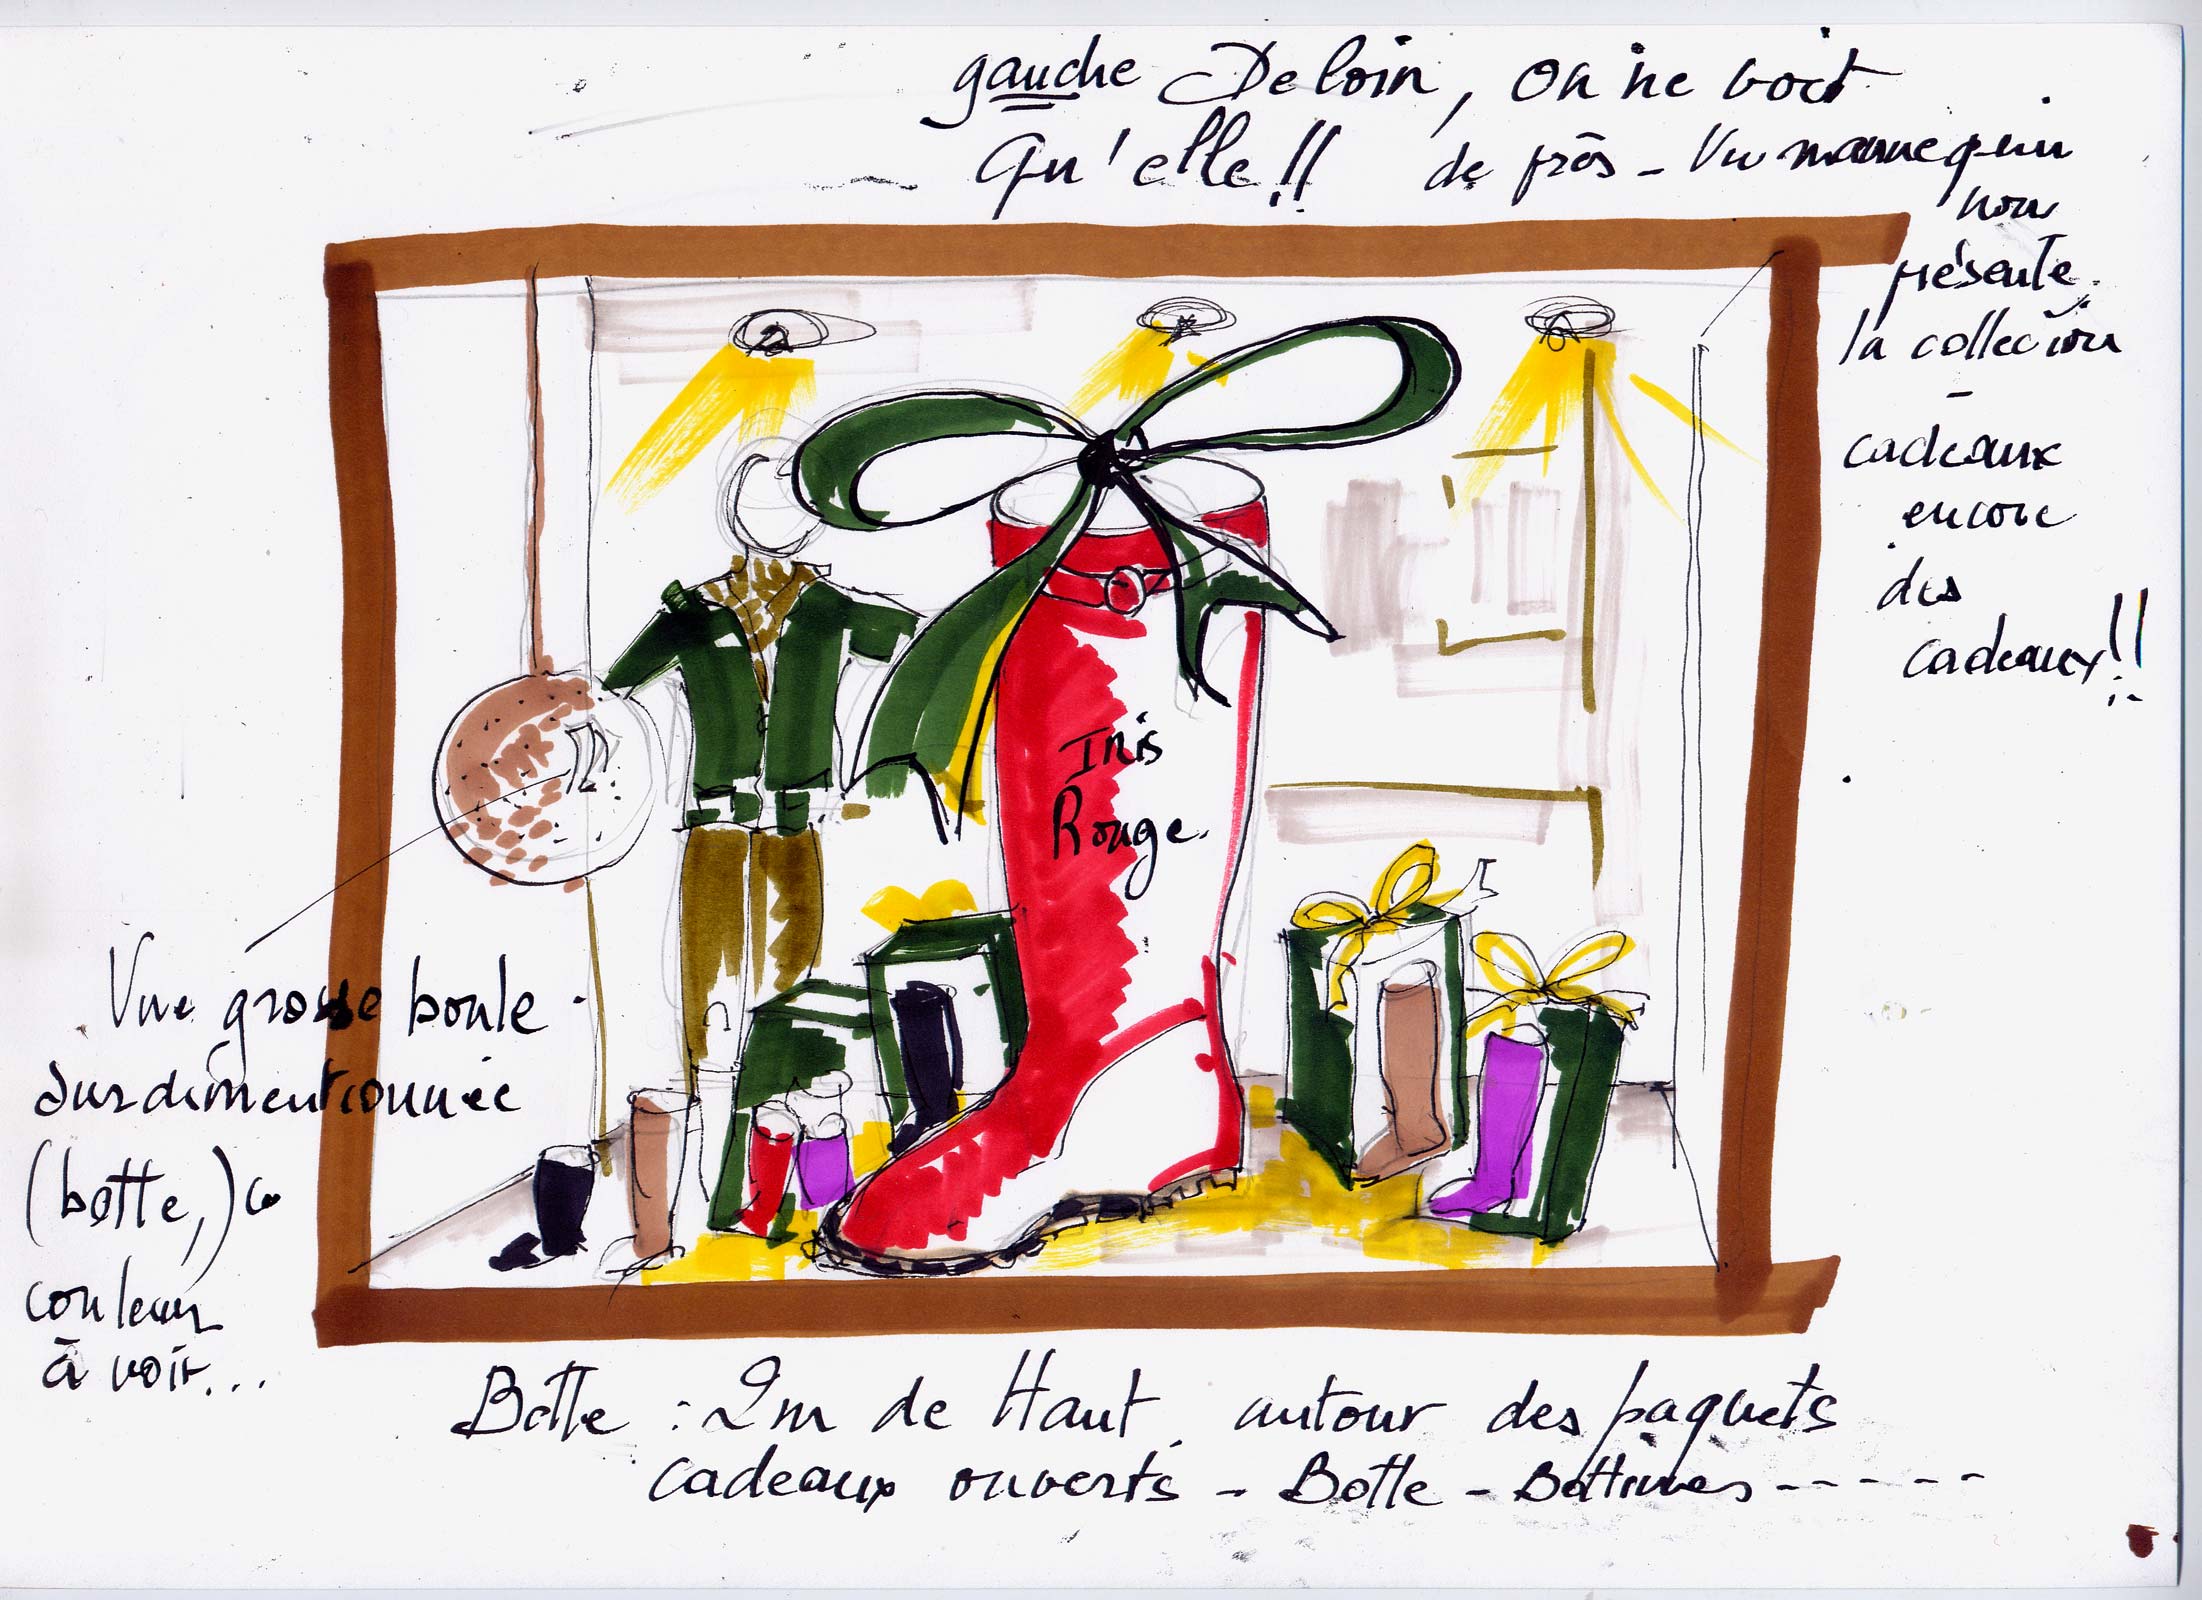 gauche De loin, on ne voit
Qu'elle!! de près - Un mannequin
nous
présente
la collection
-
cadeaux
encore
des
cadeaux!!
Iris
Rouge.
Une grosse boule
surdimentionnée
(botte,)
couleur
à voir...
Botte : 2m de Haut autour des paquets
cadeaux ouverts - Botte - Bottines -----